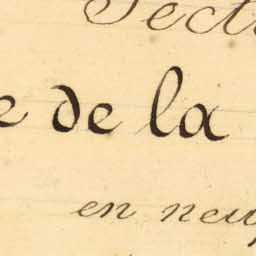 Sect
e de la
en neuf